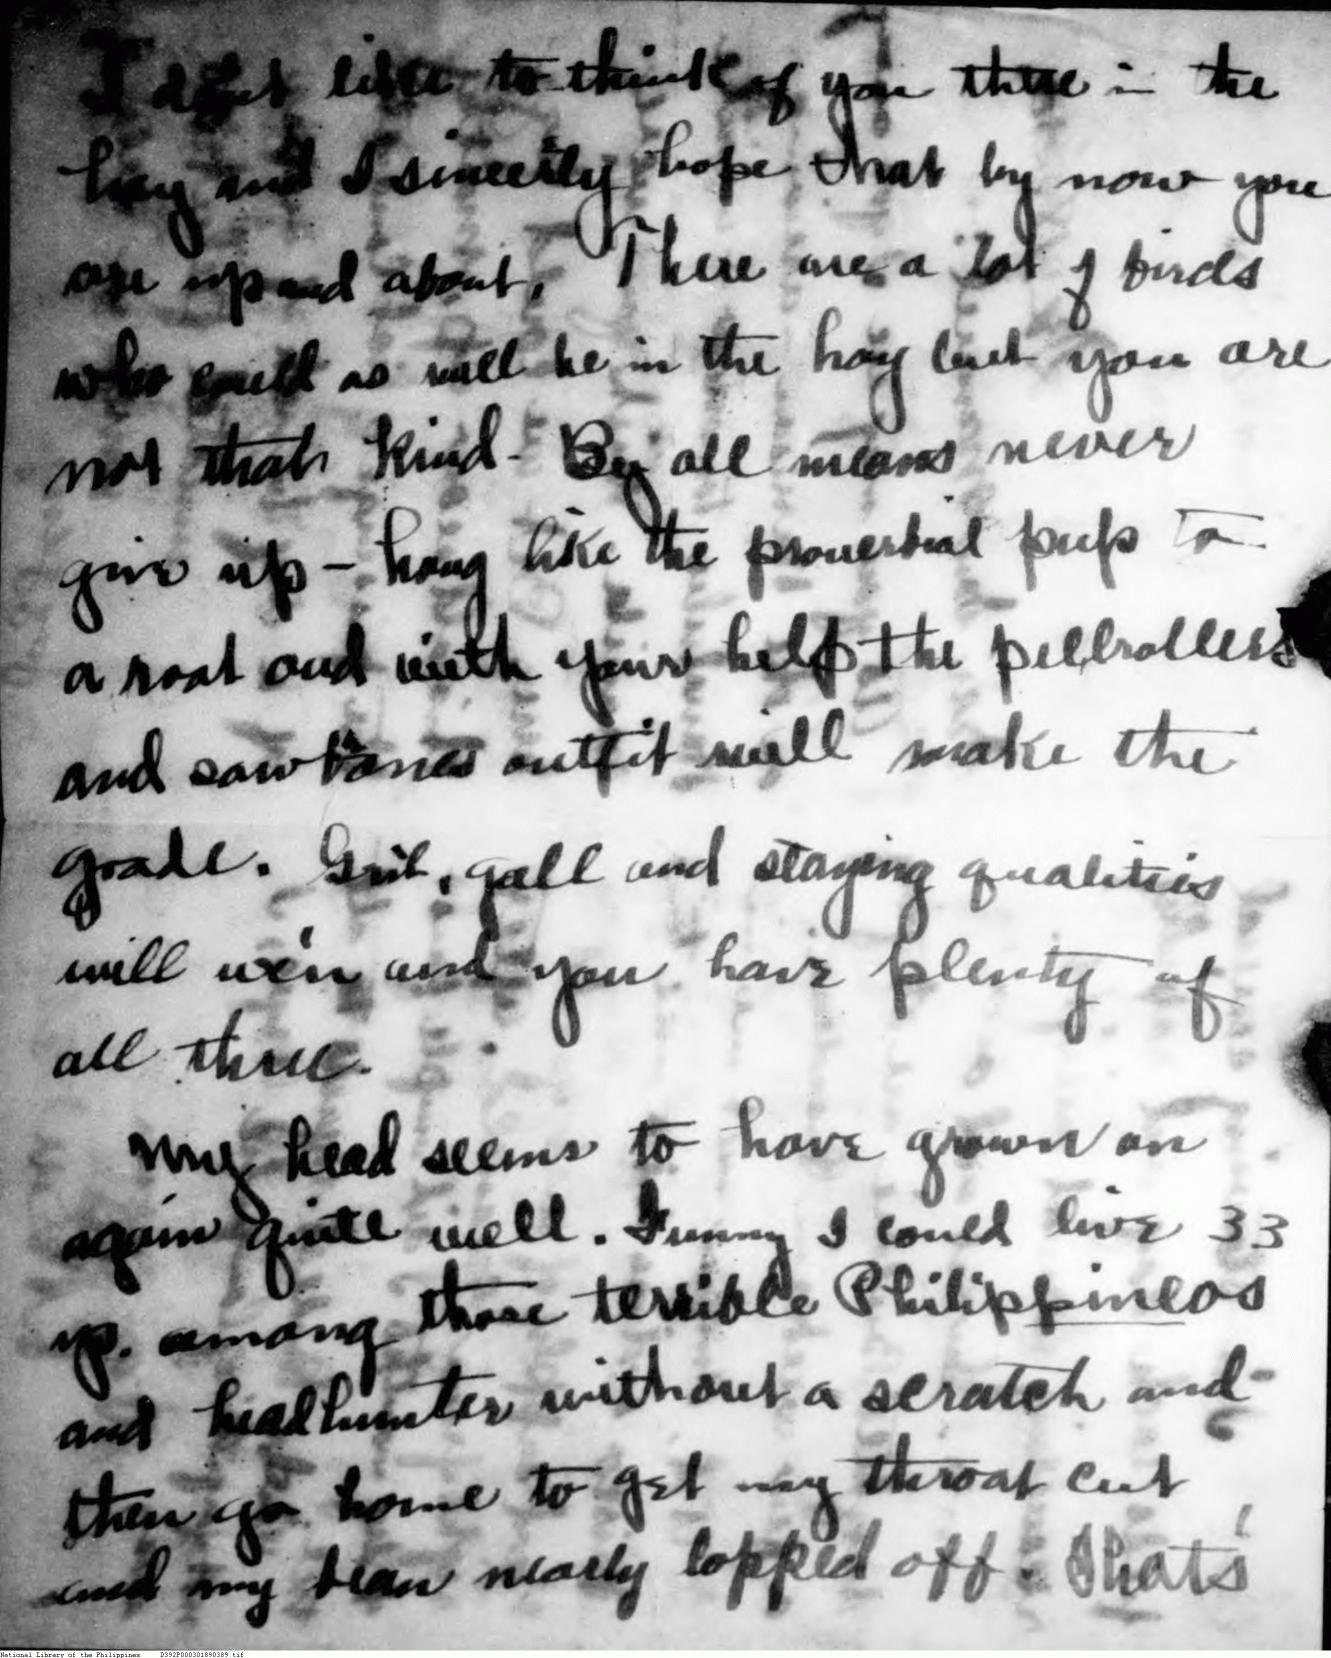 I don't like to think of you there in the
hay and I sincerely hope that by now you
are up and about. There are a lot of birds
who could as well be in the hay but you are
not that kind - By all means never
give up - hang like the proverbial pup to
a root and with your help the pillrollers
and sawbones outfit will make the
grade. Grit, gall and staying qualities
will win and you have plenty of
all three.
My head seems to have grown on
again quite well. Funny I could live 33
yr. among those terrible Philippineos
and headhunter without a scratch and
then go home to get my throat cut
and my bean nearly lopped off. That's
National Library of the Philippines D392P000301890389.tif